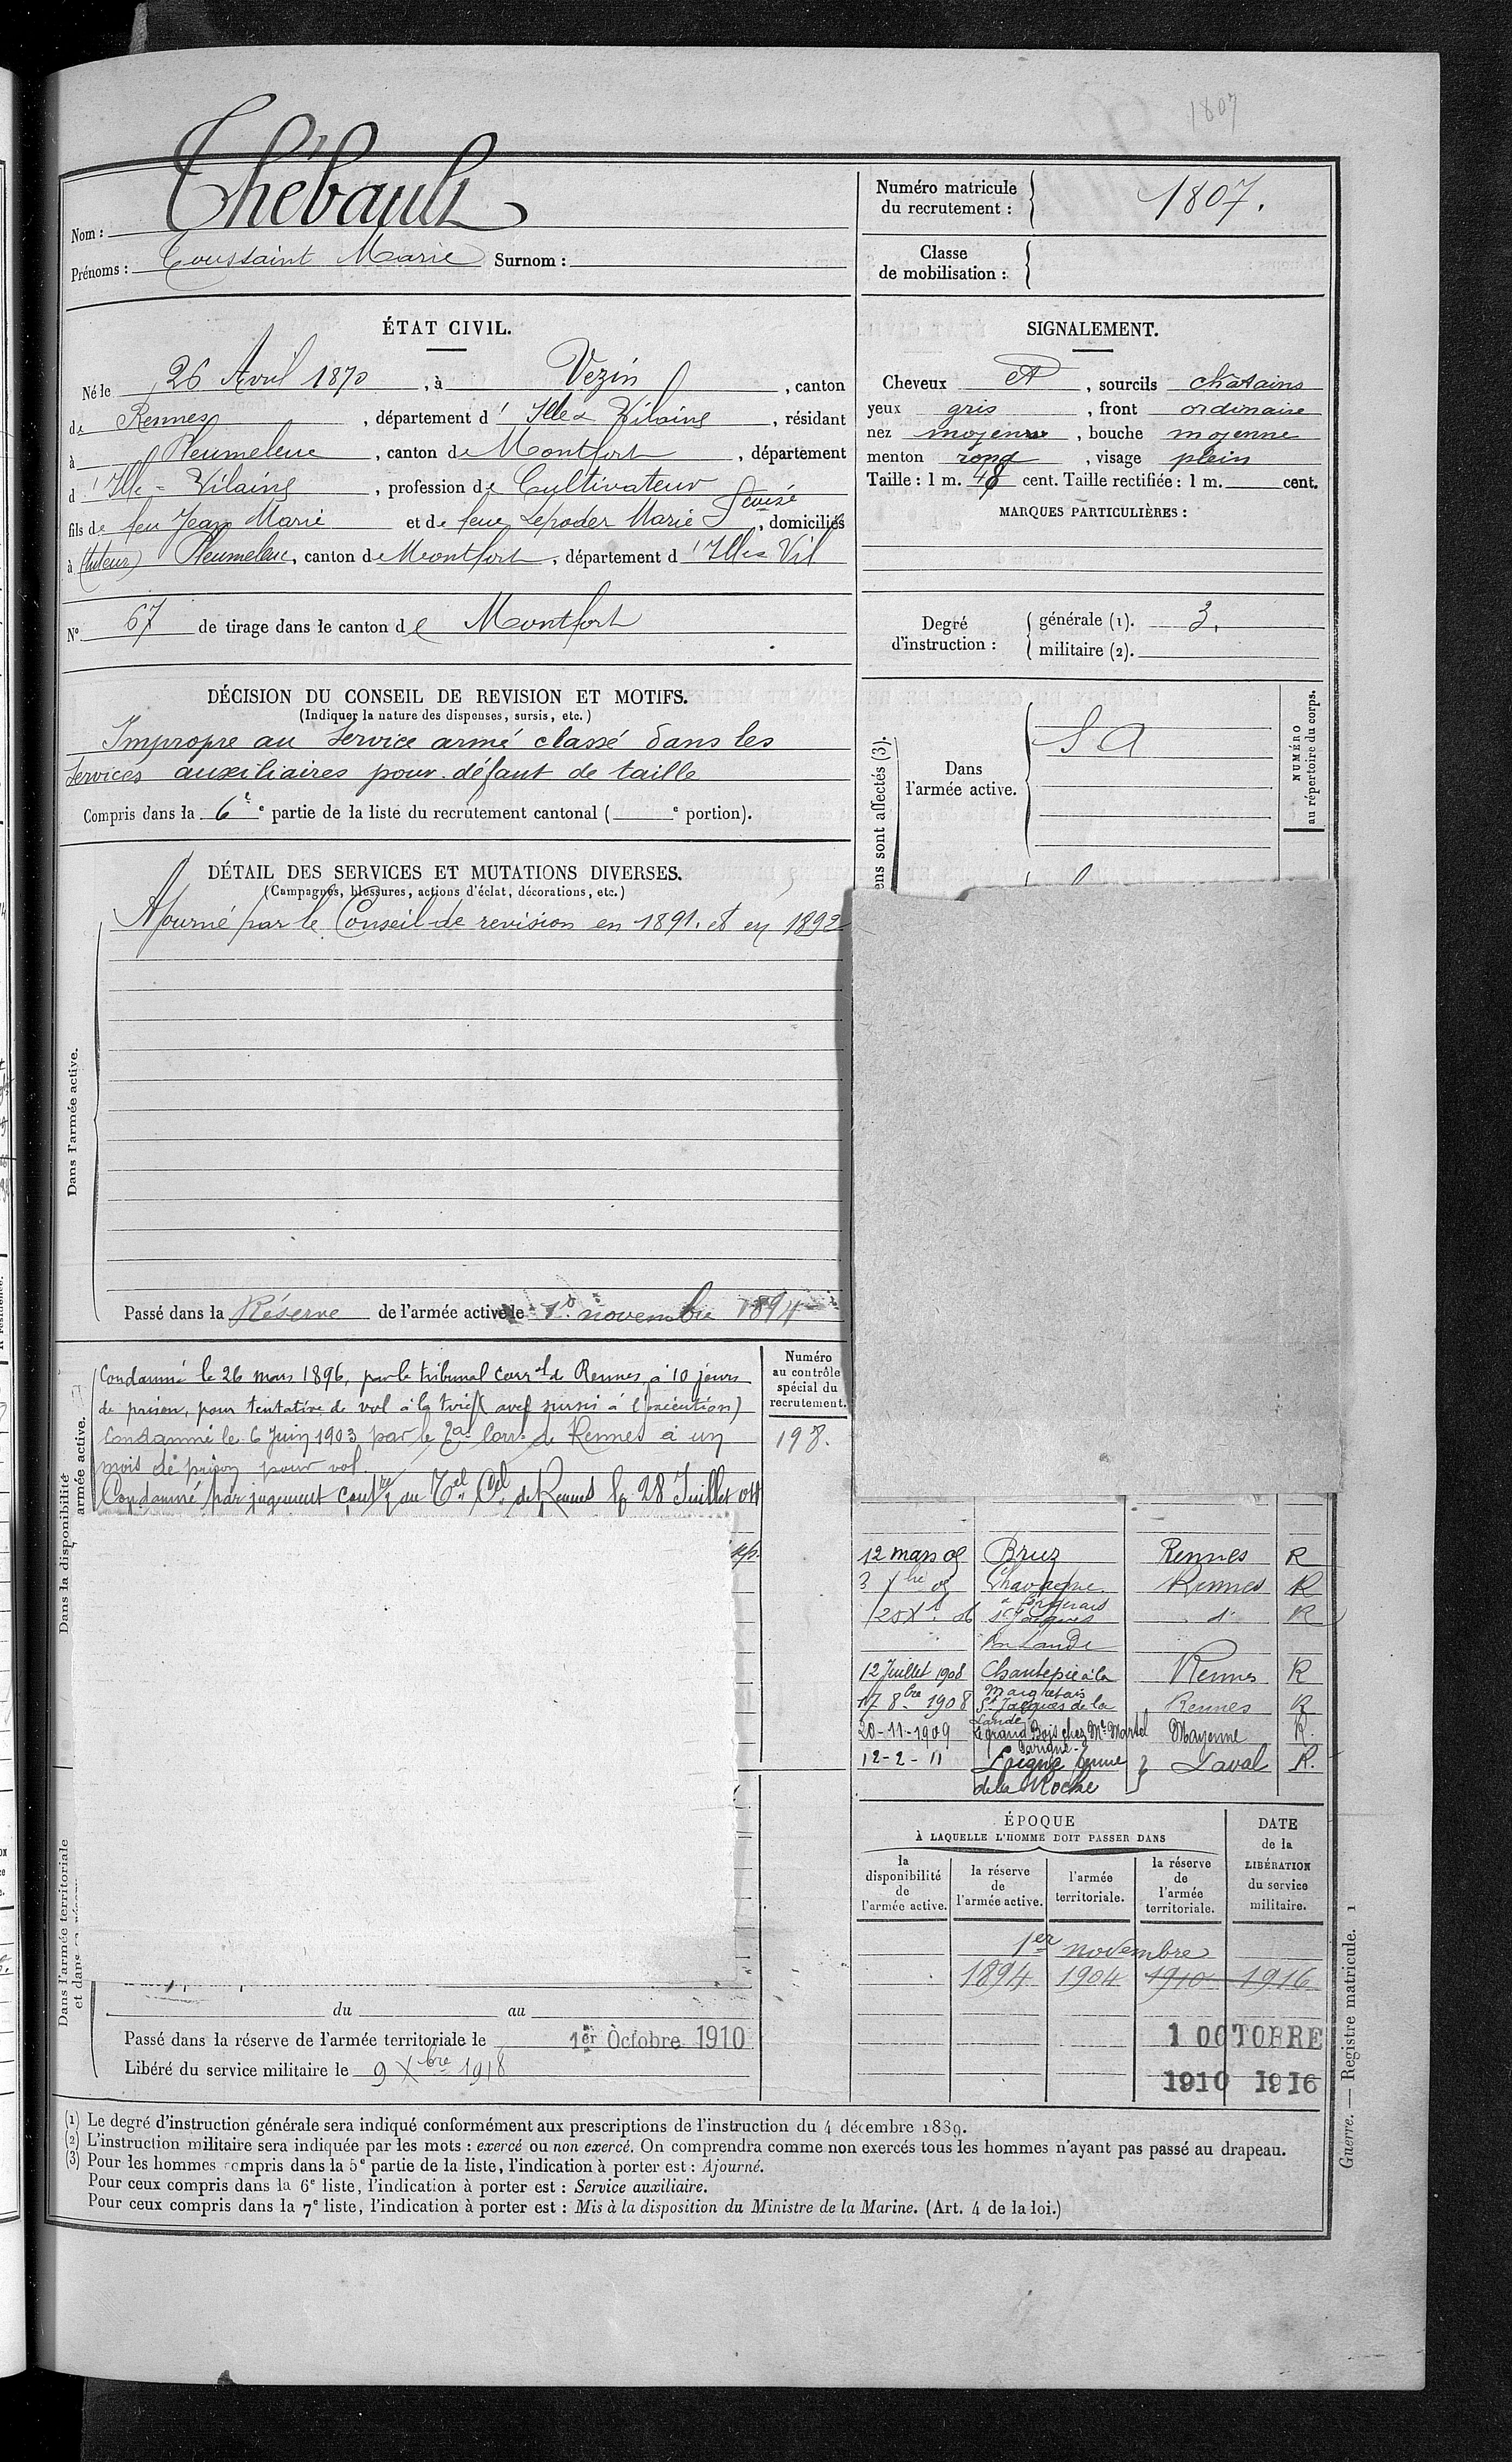 1807
Nom : Thébault
Prénoms : Toussaint Marie Surnom :
Numéro matricule du recrutement : 1807.
Classe de mobilisation :
ÉTAT CIVIL.
Né le 26 Avril 1870, à Vezin, canton
de Rennes, département d'Ille & Vilaine, résidant
à Pleumeleuc, canton de Montfort, département
d'Ille-Vilaine, profession de Cultivateur
fils de feu Jean Marie et de feue Lepoder Marie Louise, domiciliés
à (tuteur) Pleumeleuc, canton de Montfort, département d'Ille & Vil
N° 67 de tirage dans le canton de Montfort
SIGNALEMENT.
Cheveux et, sourcils chatains
yeux gris, front ordinaire
nez moyenne, bouche moyenne
menton rond, visage plein
Taille : 1 m. 48 cent. Taille rectifiée : 1 m. cent.
MARQUES PARTICULIÈRES :
Degré d'instruction : générale (1). 3.
militaire (2).
DÉCISION DU CONSEIL DE REVISION ET MOTIFS.
(Indiquer la nature des dispenses, sursis, etc.)
Impropre au service armé classé dans les
services auxiliaires pour défaut de taille
Compris dans la 6e e partie de la liste du recrutement cantonal ( e portion).
ens sont affectés (3).
Dans l'armée active.
S A
NUMÉRO au répertoire du corps.
DÉTAIL DES SERVICES ET MUTATIONS DIVERSES.
(Campagnes, blessures, actions d'éclat, décorations, etc.)
Dans l'armée active.
Ajourné par le Conseil de revision en 1891. et en 1892
Passé dans la Réserve de l'armée active le 1er novembre 1894
Dans la disponibilité
armée active.
Condamné le 26 mars 1896, par le tribunal Corr.el de Rennes, à 10 jours
de prison, pour tentative de vol à la (avec sursis à l'exécution)
Condamné le 6 Juin 1903 par le Corr. de Rennes à un
mois de prison pour vol.
Condamné par jugement au Tel Cel de Rennes le 28 Juillet 04
Numéro au contrôle spécial du recrutement.
198.
12 mars 05 Bruz Rennes R
3 Xbre 05 Chavagne Rennes R
25 Xb. 06 St Jacques d° R
la Lande
12 Juillet 1908 Chantepie à la Rennes R
17 8bre 1908 St Jacques de la Rennes R
Lande
20-11-1909 Le grand Bois chez Mr Martel Mayenne R.
Parigné
12-2-11 ferme Laval R.
de la Roche
ÉPOQUE
À LAQUELLE L'HOMME DOIT PASSER DANS
la disponibilité de l'armée active.
la réserve de l'armée active.
l'armée territoriale.
la réserve de l'armée territoriale.
DATE de la LIBÉRATION du service militaire.
1er novembre
1894 1904 1910 1916
1 OCTOBRE
1910 1916
Dans l'armée territoriale
et dans
du au
Passé dans la réserve de l'armée territoriale le 1er Octobre 1910
Libéré du service militaire le 9 Xbre 1918
(1) Le degré d'instruction générale sera indiqué conformément aux prescriptions de l'instruction du 4 décembre 1889.
(2) L'instruction militaire sera indiquée par les mots : exercé ou non exercé. On comprendra comme non exercés tous les hommes n'ayant pas passé au drapeau.
(3) Pour les hommes compris dans la 5e partie de la liste, l'indication à porter est : Ajourné.
Pour ceux compris dans la 6e liste, l'indication à porter est : Service auxiliaire.
Pour ceux compris dans la 7e liste, l'indication à porter est : Mis à la disposition du Ministre de la Marine. (Art. 4 de la loi.)
Guerre. — Registre matricule. 1